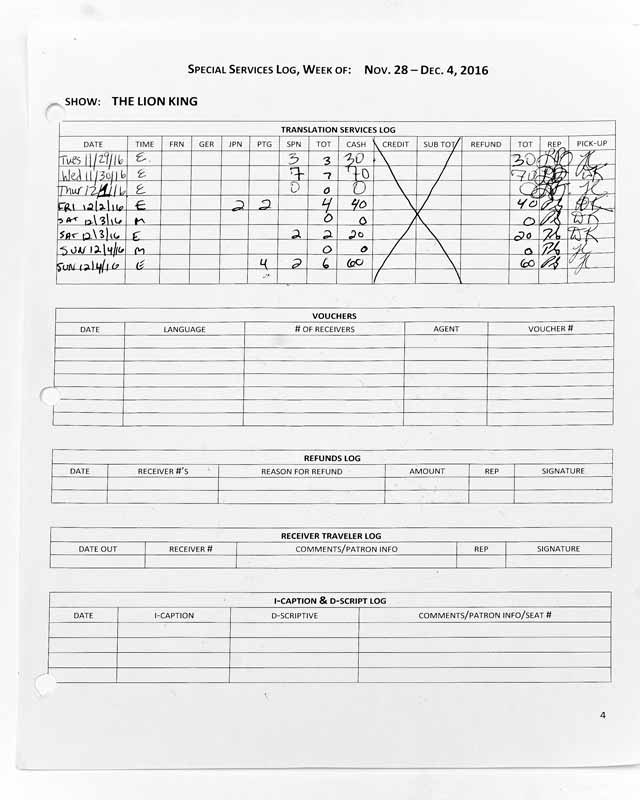 SPECIAL SERVICES LOG, WEEK OF: NOV. 28 – DEC. 4, 2016
SHOW: THE LION KING
TRANSLATION SERVICES LOG
DATE TIME FRN GER JPN PTG SPN TOT CASH CREDIT SUB TOT REFUND TOT REP PICK-UP
Tues 11/29/16 E 3 3 30 30
Wed 11/30/16 E 7 7 70 70
Thur 12/1/16 E 0 0 0 0
FRI 12/2/16 E 2 2 4 40 40
SAT 12/3/16 M 0 0 0
SAT 12/3/16 E 2 2 20 20
SUN 12/4/16 M 0 0 0
SUN 12/4/16 E 4 2 6 60 60
VOUCHERS
DATE LANGUAGE # OF RECEIVERS AGENT VOUCHER #
REFUNDS LOG
DATE RECEIVER #'S REASON FOR REFUND AMOUNT REP SIGNATURE
RECEIVER TRAVELER LOG
DATE OUT RECEIVER # COMMENTS/PATRON INFO REP SIGNATURE
I-CAPTION & D-SCRIPT LOG
DATE I-CAPTION D-SCRIPTIVE COMMENTS/PATRON INFO/SEAT #
4